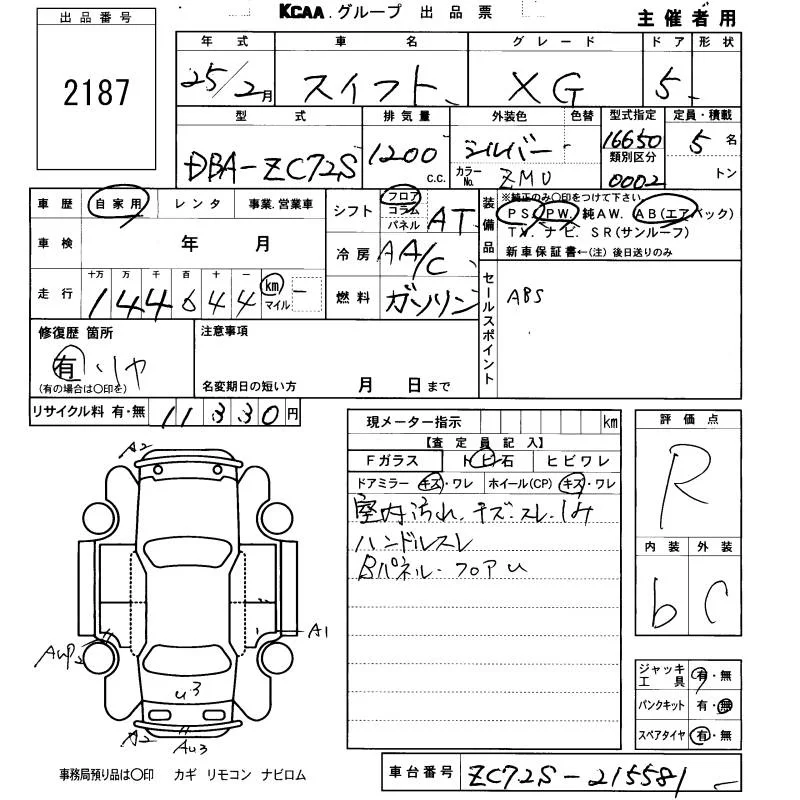 出品番号
2187
KCAA.グループ 出品票
主催者用
年式 車名 グレード ドア 形状
25/2月 スイフト XG 5
型式 排気量 外装色 色替 型式指定 定員・積載
DBA-ZC72S 1200 c.c. シルバー 16650 5名
カラーNo. ZMU 類別区分 0002 トン
車歴 自家用 レンタ 事業.営業車
シフト フロア コラム パネル AT
装備品
※純正のみ〇印をつけて下さい
PS. PW. 純AW. AB(エアバック)
TV. ナビ. SR(サンルーフ)
新車保証書←(注)後日送りのみ
車検 年 月
冷房 AA/C
走行 十万 万 千 百 十 一
144644 km マイル
燃料 ガソリン
セールスポイント
ABS
修復歴 箇所
有 リヤ
(有の場合は〇印を)
注意事項
名変期日の短い方 月 日まで
リサイクル料 有・無 11330円
現メーター指示 km
【査定員記入】
Fガラス トビ石 ヒビワレ
ドアミラー キズ・ワレ ホイール(CP) キズ・ワレ
室内汚れ.キズ.スレ.シミ
ハンドルスレ
Bパネル・フロアU
評価点
R
内装 外装
b C
A2
A1
AUP2
U3
A2
AU3
ジャッキ工具 有・無
パンクキット 有・無
スペアタイヤ 有・無
事務局預り品は〇印 カギ リモコン ナビロム
車台番号 ZC72S-215581